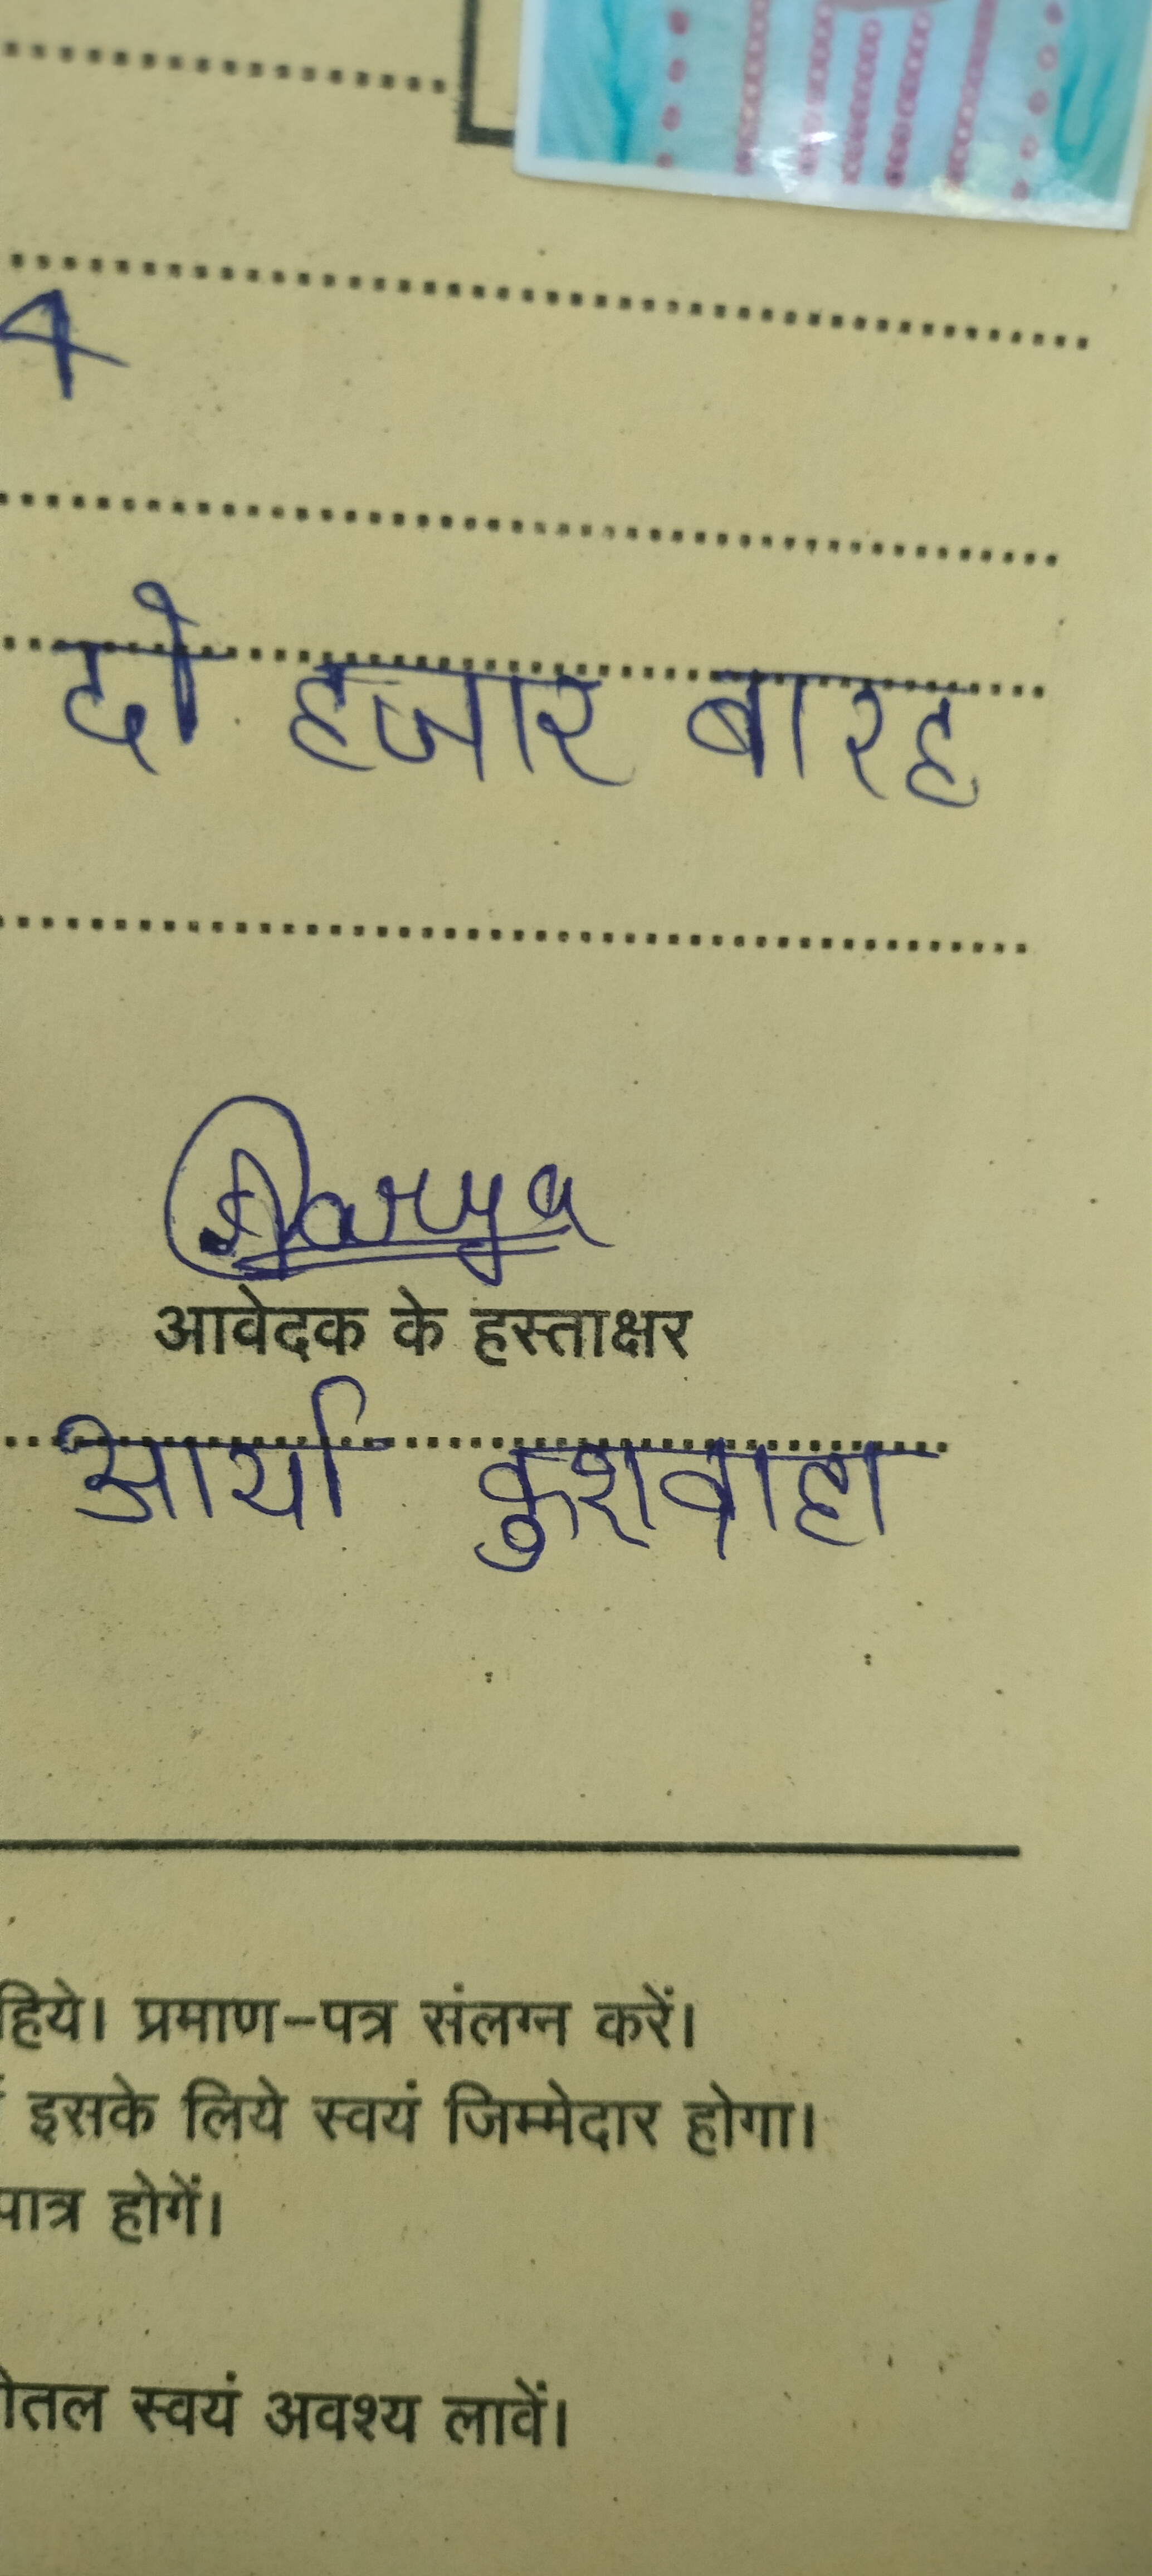 4
दो हजार बारह
Aarya
आवेदक के हस्ताक्षर
आर्या कुशवाहा
हिये। प्रमाण-पत्र संलग्न करें।
इसके लिये स्वयं जिम्मेदार होगा।
पात्र होगें।
ोतल स्वयं अवश्य लावें।